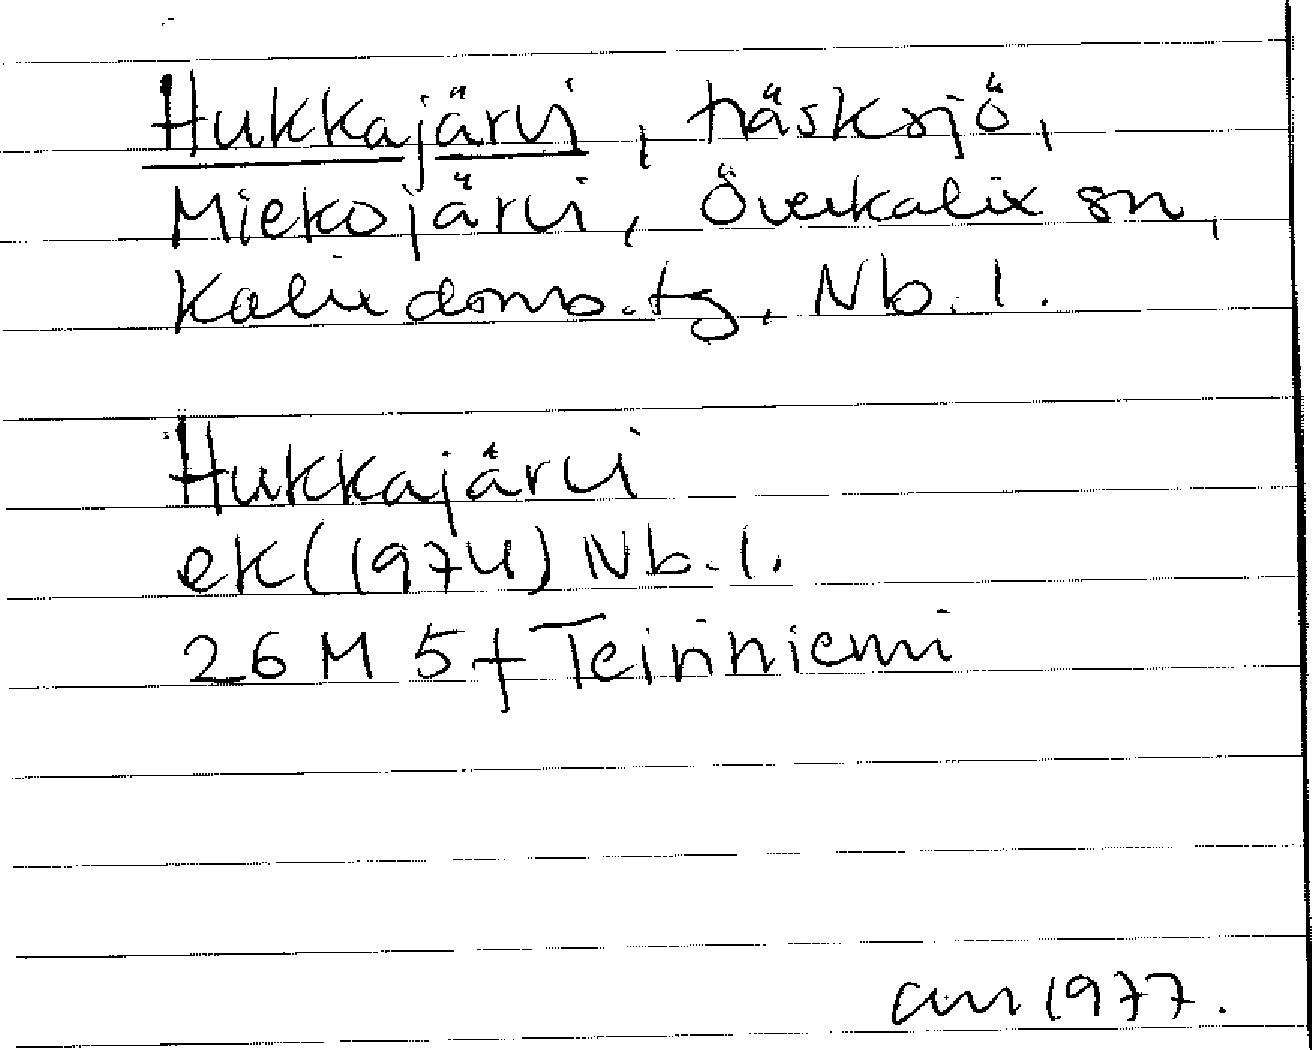 Hukkajärvi, träsksjö,
Miekojärvi, Överkalix sn,
Kalix doms.tg. Nb. l.
Hukkajärvi
ek (1974) Nb. l.
26 M 5f Teirinniemi
1977.